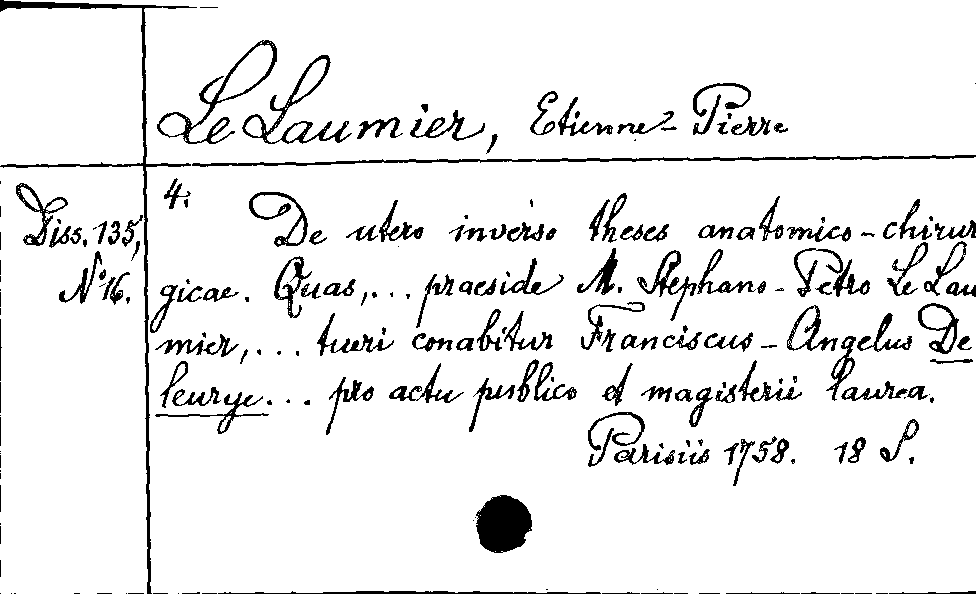 Le Laumier, Etienne-Pierre
Diss. 135,
No 16.
4.
De utero inverso theses anatomico-chirur
gicae. Quas,... praeside M. Stephano-Petro Le Lau
mier,... tueri conabitur Franciscus-Angelus De
leurye... pro actu publico et magisterii laurea.
Parisiis 1758. 18 S.